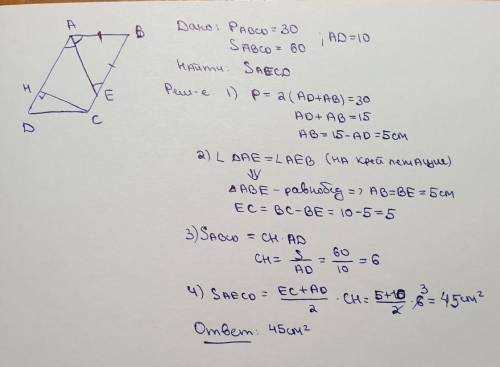 A
B
H
E
D
C
Дано: PABCD = 30
SABCD = 60 ; AD = 10
Найти: SAECD
Реш-е: 1) P = 2(AD+AB) = 30
AD + AB = 15
AB = 15 - AD = 5см
2) ∠DAE = ∠AEB (на крест лежащие)
⇓
△ABE - равнобед => AB = BE = 5см
EC = BC - BE = 10 - 5 = 5
3) SABCD = CH · AD
CH = S/AD = 60/10 = 6
4) SAECD = (EC + AD)/2 · CH = (5+10)/2 · 6 3 = 45см²
Ответ: 45см²